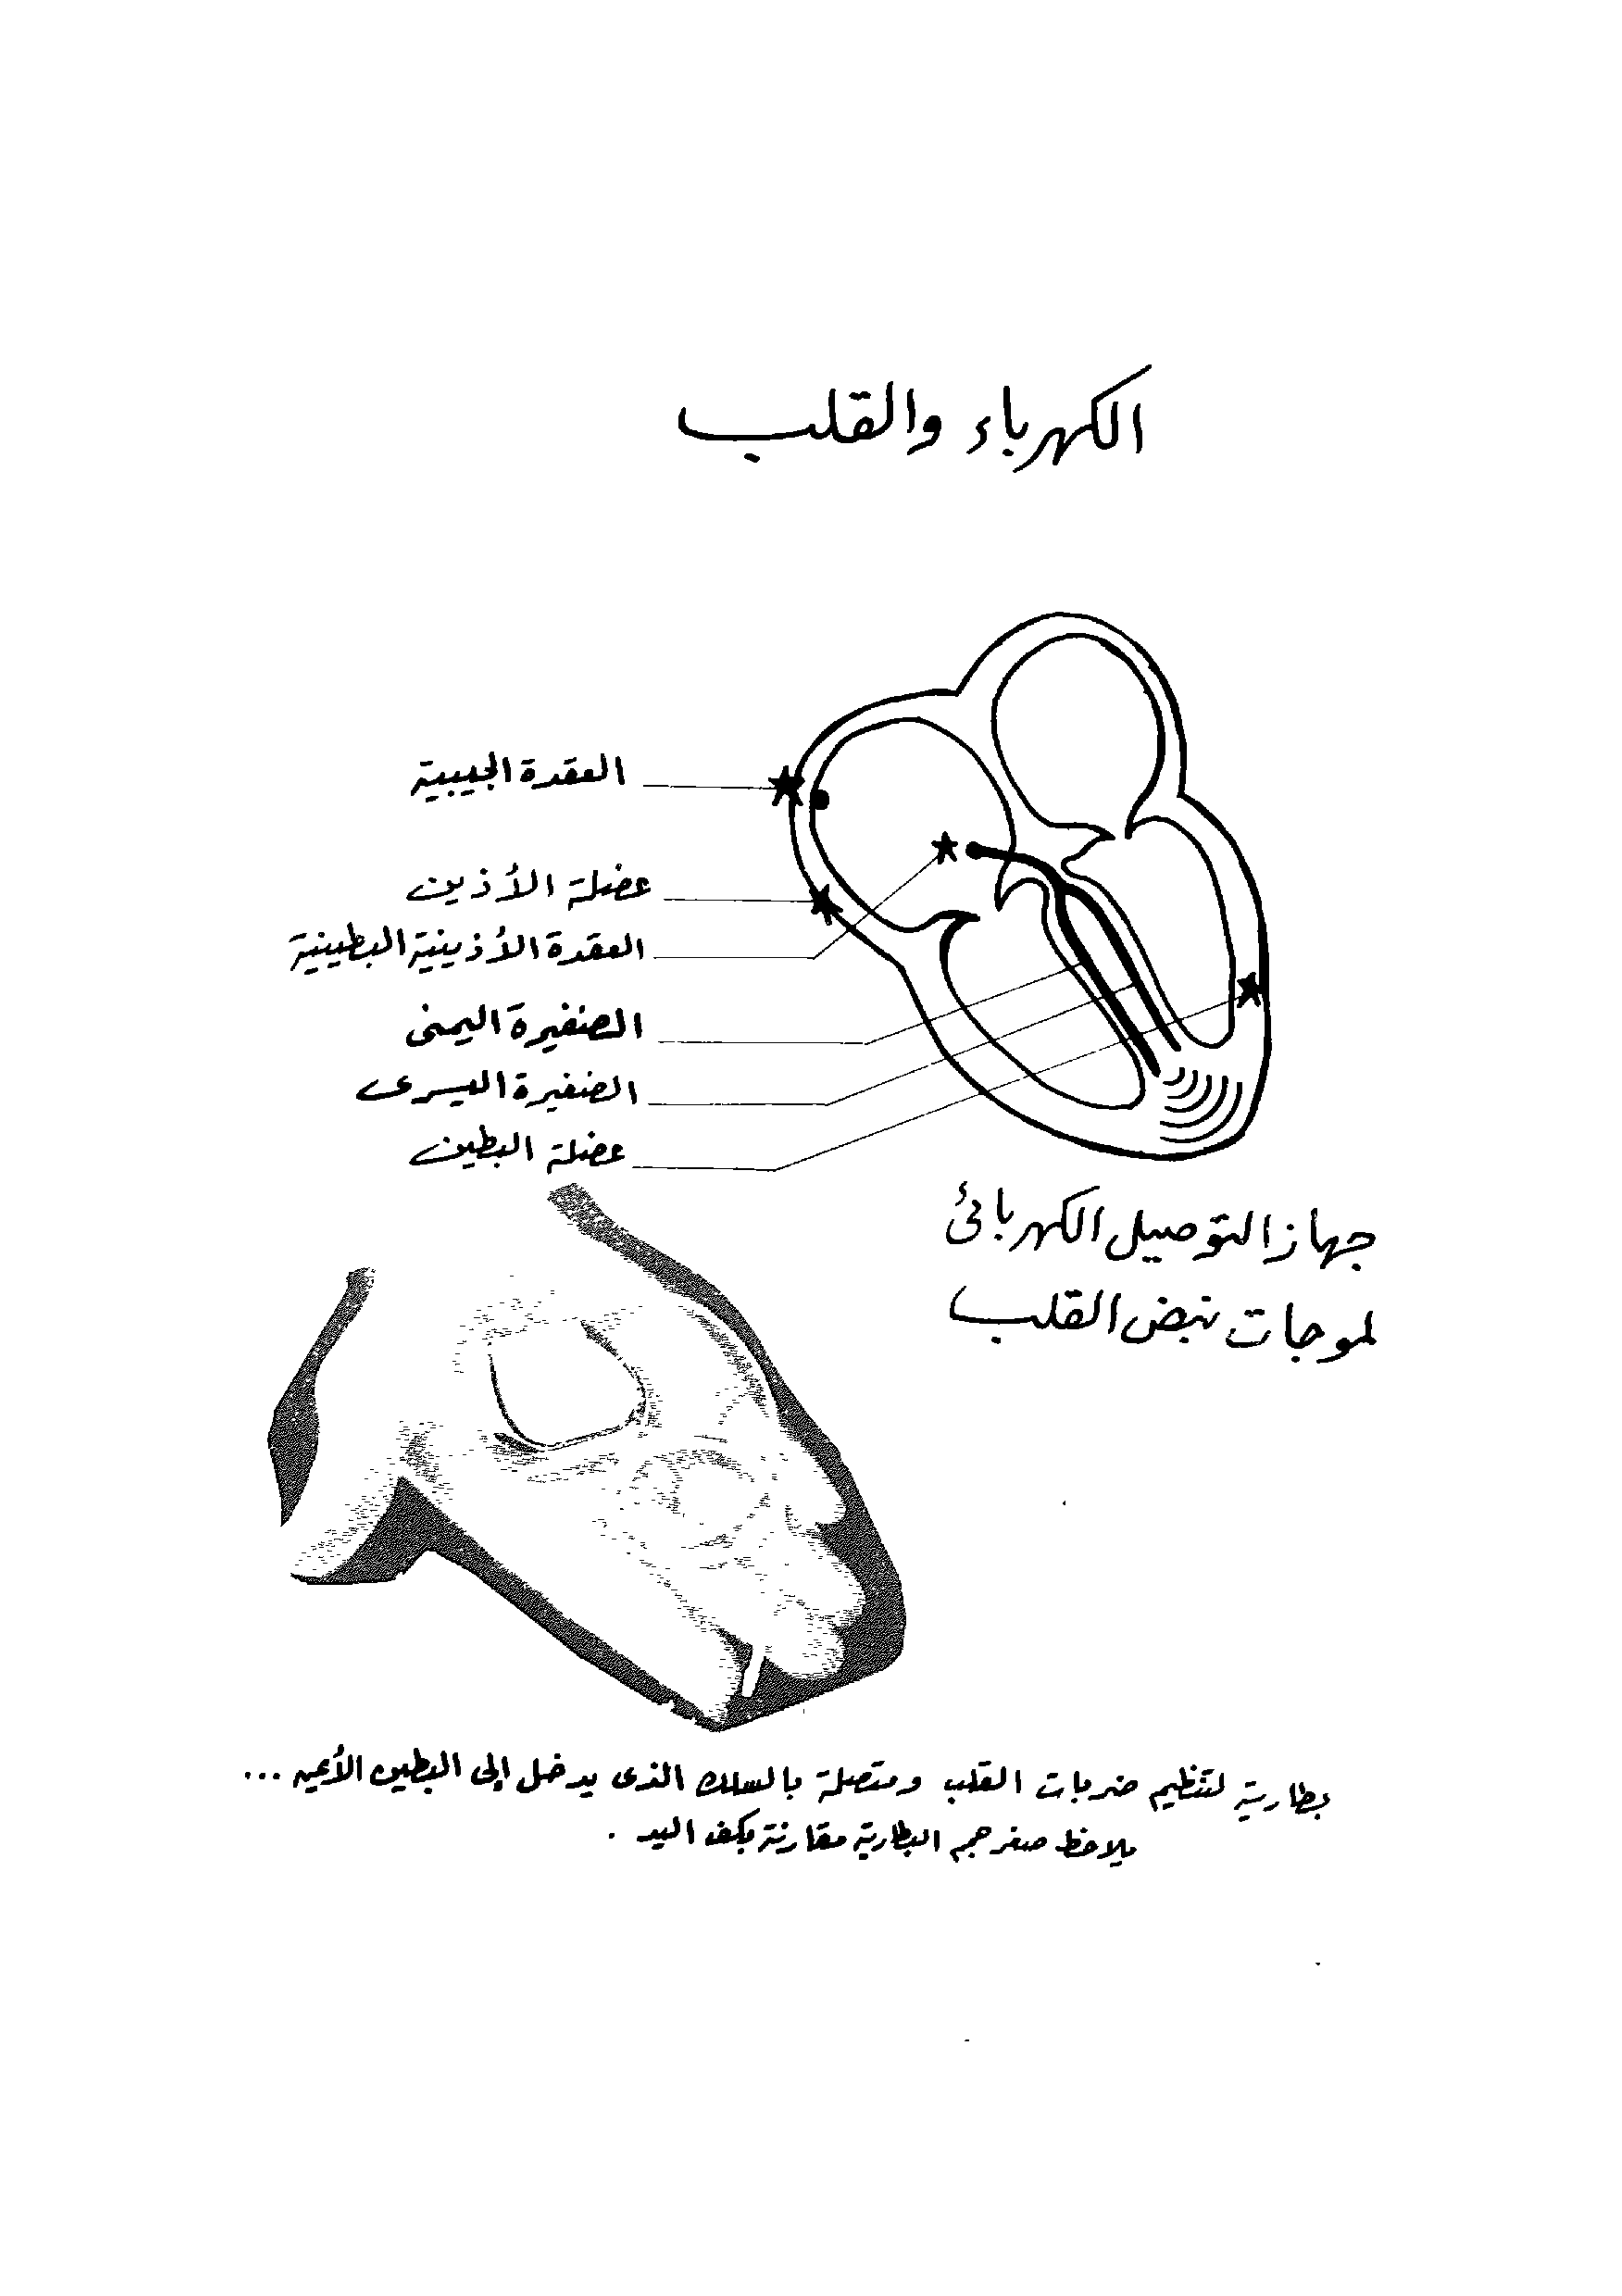 الكهرباء والقلب
العقدة الجيبية
عضلة الأذين
العقدة الأذينية البطينية
الضفيرة اليمنى
الضفيرة اليسرى
عضلة البطين
جهاز التوصيل الكهربائى
لموجات نبض القلب
بطارية لتنظيم ضربات القلب ومتصلة بالسلك الذى يدخل إلى البطين الأيمن ...
يلاحظ صغر حجم البطارية مقارنة بكف اليد .